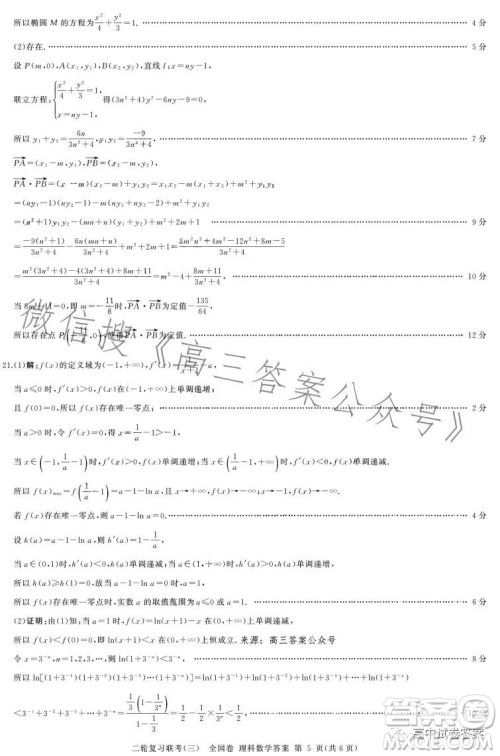 所以椭圆 M 的方程为 x²/4 + y²/3 = 1. …… 4 分
(2)存在. ……
设 P(m,0),A(x₁,y₁),B(x₂,y₂),直线 l:x=ny−1,
联立方程:{x²/4 + y²/3 = 1, x=ny−1, 得(3n²+4)y²−6ny−9=0,
所以 y₁+y₂=6n/(3n²+4),y₁y₂=−9/(3n²+4). …… 7 分
PA=(x₁−m,y₁),PB=(x₂−m,y₂),
PA·PB=(x₁−m)(x₂−m)+y₁y₂=x₁x₂−m(x₁+x₂)+m²+y₁y₂
=(ny₁−1)(ny₂−1)−m(ny₁−1+ny₂−1)+m²+y₁y₂
=(n²+1)y₁y₂−(mn+n)(y₁+y₂)+m²+2m+1 …… 9 分
=−9(n²+1)/(3n²+4)−6n(mn+n)/(3n²+4)+m²+2m+1=(3m²n²+4m²−12n²+8m−5)/(3n²+4)
=(m²(3n²+4)−4(3n²+4)+8m+11)/(3n²+4)=m²−4+(8m+11)/(3n²+4), …… 10 分
当 8m+11=0,即 m=−11/8时,PA·PB为定值−135/64,
所以存在点 P(−11/8,0),使得PA·PB为定值. …… 12 分
21.(1)解:f(x)的定义域为(−1,+∞),f′(x)=
当 a≤0 时,f′(x)>0,f(x)在(−1,+∞)上单调递增;
且 f(0)=0,所以 f(x)存在唯一零点; …… 2 分
当 a>0 时,令 f′(x)=0,得 x=1/a−1>−1.
当 x∈(−1,1/a−1)时,f′(x)>0,f(x)单调递增;当 x∈(1/a−1,+∞)时,f′(x)<0,f(x)单调递减.
所以 f(x)max=f(1/a−1)=a−1−ln a,且 x→+∞,f(x)→−∞,x→−1,f(x)→−∞.
若 f(x)存在唯一零点,则 a−1−ln a=0. …… 4 分
设 h(a)=a−1−ln a,则 h′(a)=1−1/a,
当 a∈(0,1)时,h′(a)<0,h(a)单调递减,当 a∈(1,+∞)时,h′(a)>0,h(a)单调递增,
所以 h(a)≥h(1)=0.故 a=1.
所以 f(x)存在唯一零点时,实数 a 的取值范围为 a≤0 或 a=1. …… 6 分
(2)证明:由(1)知:当 a=1 时,f(x)在(0,+∞)上单调递减,
所以 f(x)<f(0)=0,即 ln(1+x)<x 在(0,+∞)上恒成立. 来源:高三答案公众号
令 x=3⁻ⁿ,n=1,2,3,…,则 ln(1+3⁻ⁿ)<3⁻ⁿ, …… 8 分
所以 ln[(1+3⁻¹)(1+3⁻²)(1+3⁻³)…(1+3⁻ⁿ)]=ln(1+3⁻¹)+ln(1+3⁻²)+ln(1+3⁻³)+…+ln(1+3⁻ⁿ)
<3⁻¹+3⁻²+3⁻³+…+3⁻ⁿ=
二轮复习联考(三) 全国卷 理科数学答案 第 5 页(共 6 页)
微信搜《高三答案公众号》
高中试卷答案